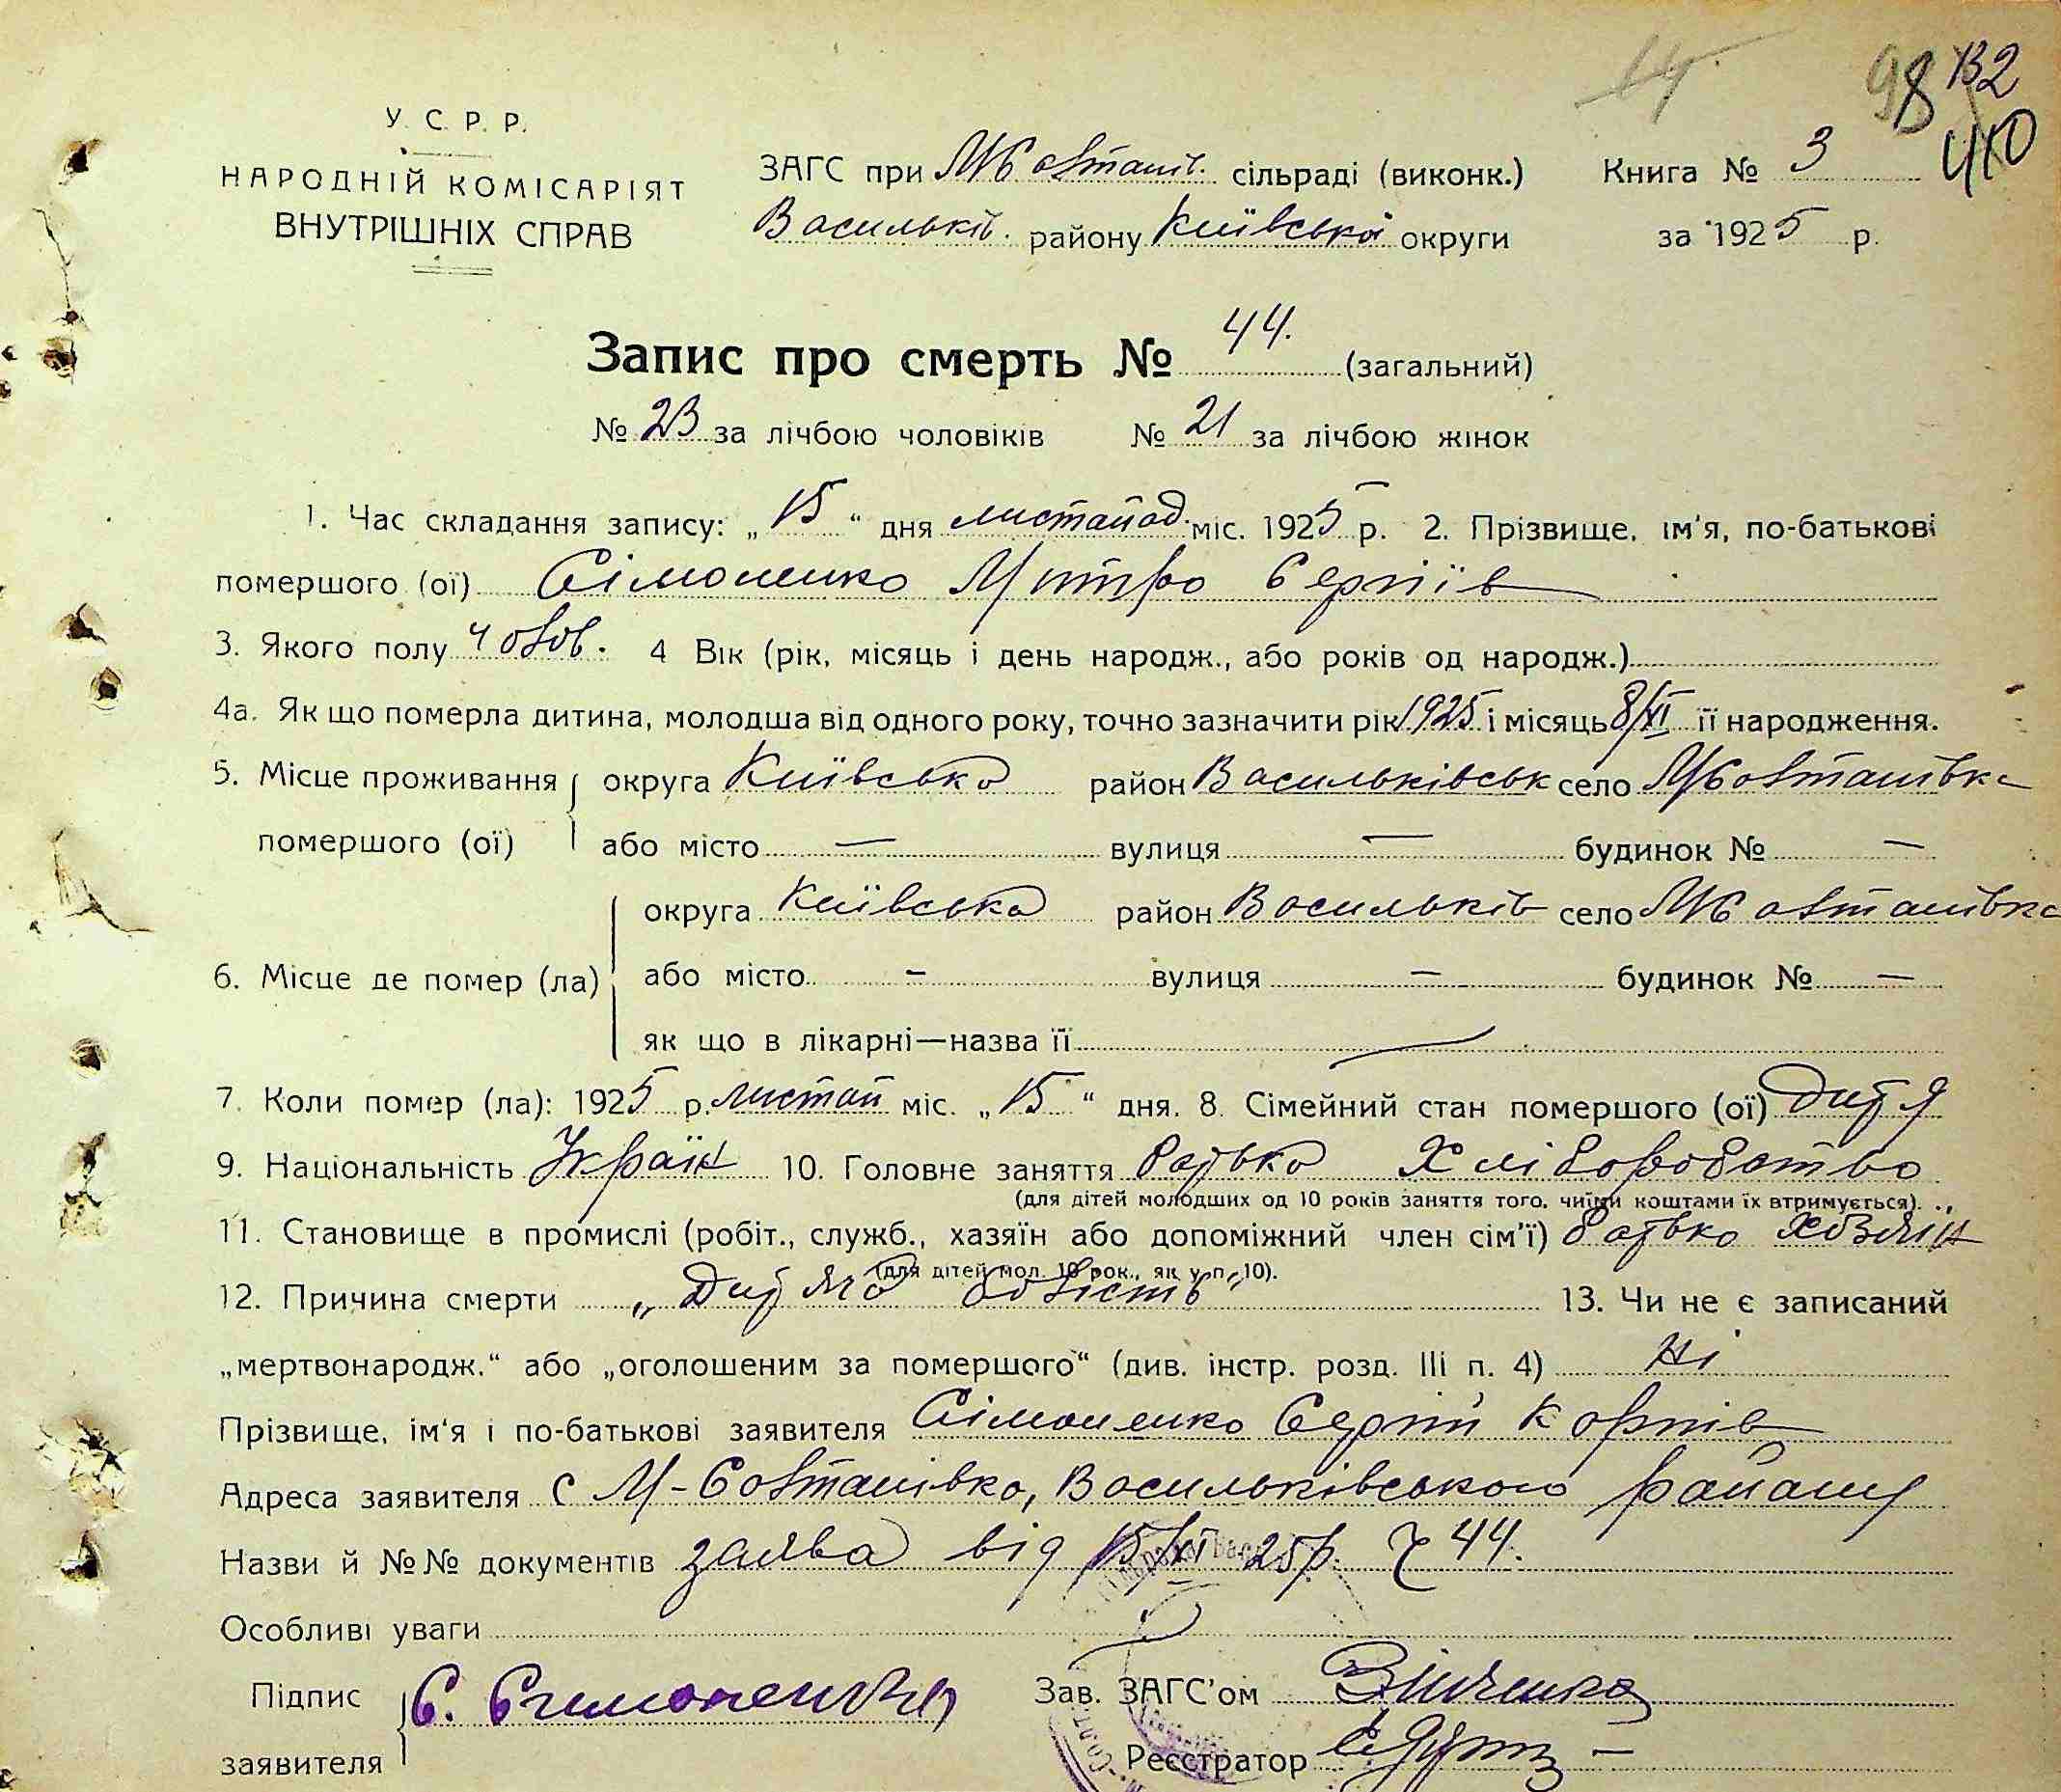 14
98 132
410
У. С. Р. Р.
НАРОДНІЙ КОМІСАРІЯТ
ВНУТРІШНІХ СПРАВ
ЗАГС при М Солтанів. сільраді (виконк.) Книга № 3
Васильків. району Київської округи за 1925 р.
Запис про смерть № 44. (загальний)
№ 23 за лічбою чоловіків № 21 за лічбою жінок
1. Час складання запису: „15“ дня листопад. міс. 1925 р. 2. Прізвище, ім'я, по-батькові
помершого (ої) Сімоненко Митро Сергіїв
3. Якого полу чолов. 4 Вік (рік, місяць і день народж., або років од народж.)
4а. Як що померла дитина, молодша від одного року, точно зазначити рік 1925 і місяць 8/XI її народження.
5. Місце проживання округа Київська район Васильківськ село М Солтанівка
помершого (ої) або місто — вулиця — будинок № —
округа Київська район Васильків село М Солтанівка
6. Місце де помер (ла) або місто - вулиця — будинок № —
як що в лікарні—назва її —
7. Коли помер (ла): 1925 р. листоп міс. „15“ дня. 8. Сімейний стан помершого (ої) дитя
9. Національність Україн 10. Головне заняття батько Хліборобство
(для дітей молодших од 10 років заняття того, чиїми коштами їх втримується).
11. Становище в промислі (робіт., служб., хазяїн або допоміжний член сім'ї) батько хозяїн
(для дітей мол. 10 рок., як у п. 10).
12. Причина смерти „Дитяча 13. Чи не є записаний
„мертвонародж.“ або „оголошеним за помершого“ (див. інстр. розд. III п. 4) Ні
Прізвище, ім'я і по-батькові заявителя Сімоненко Сергій Корнів
Адреса заявителя с М-Солтанівка, Васильківського району
Назви й №№ документів заява від 15/XI 25р. Ч 44.
Особливі уваги
Підпис С. Симоненко Зав. ЗАГС'ом
заявителя Реєстратор